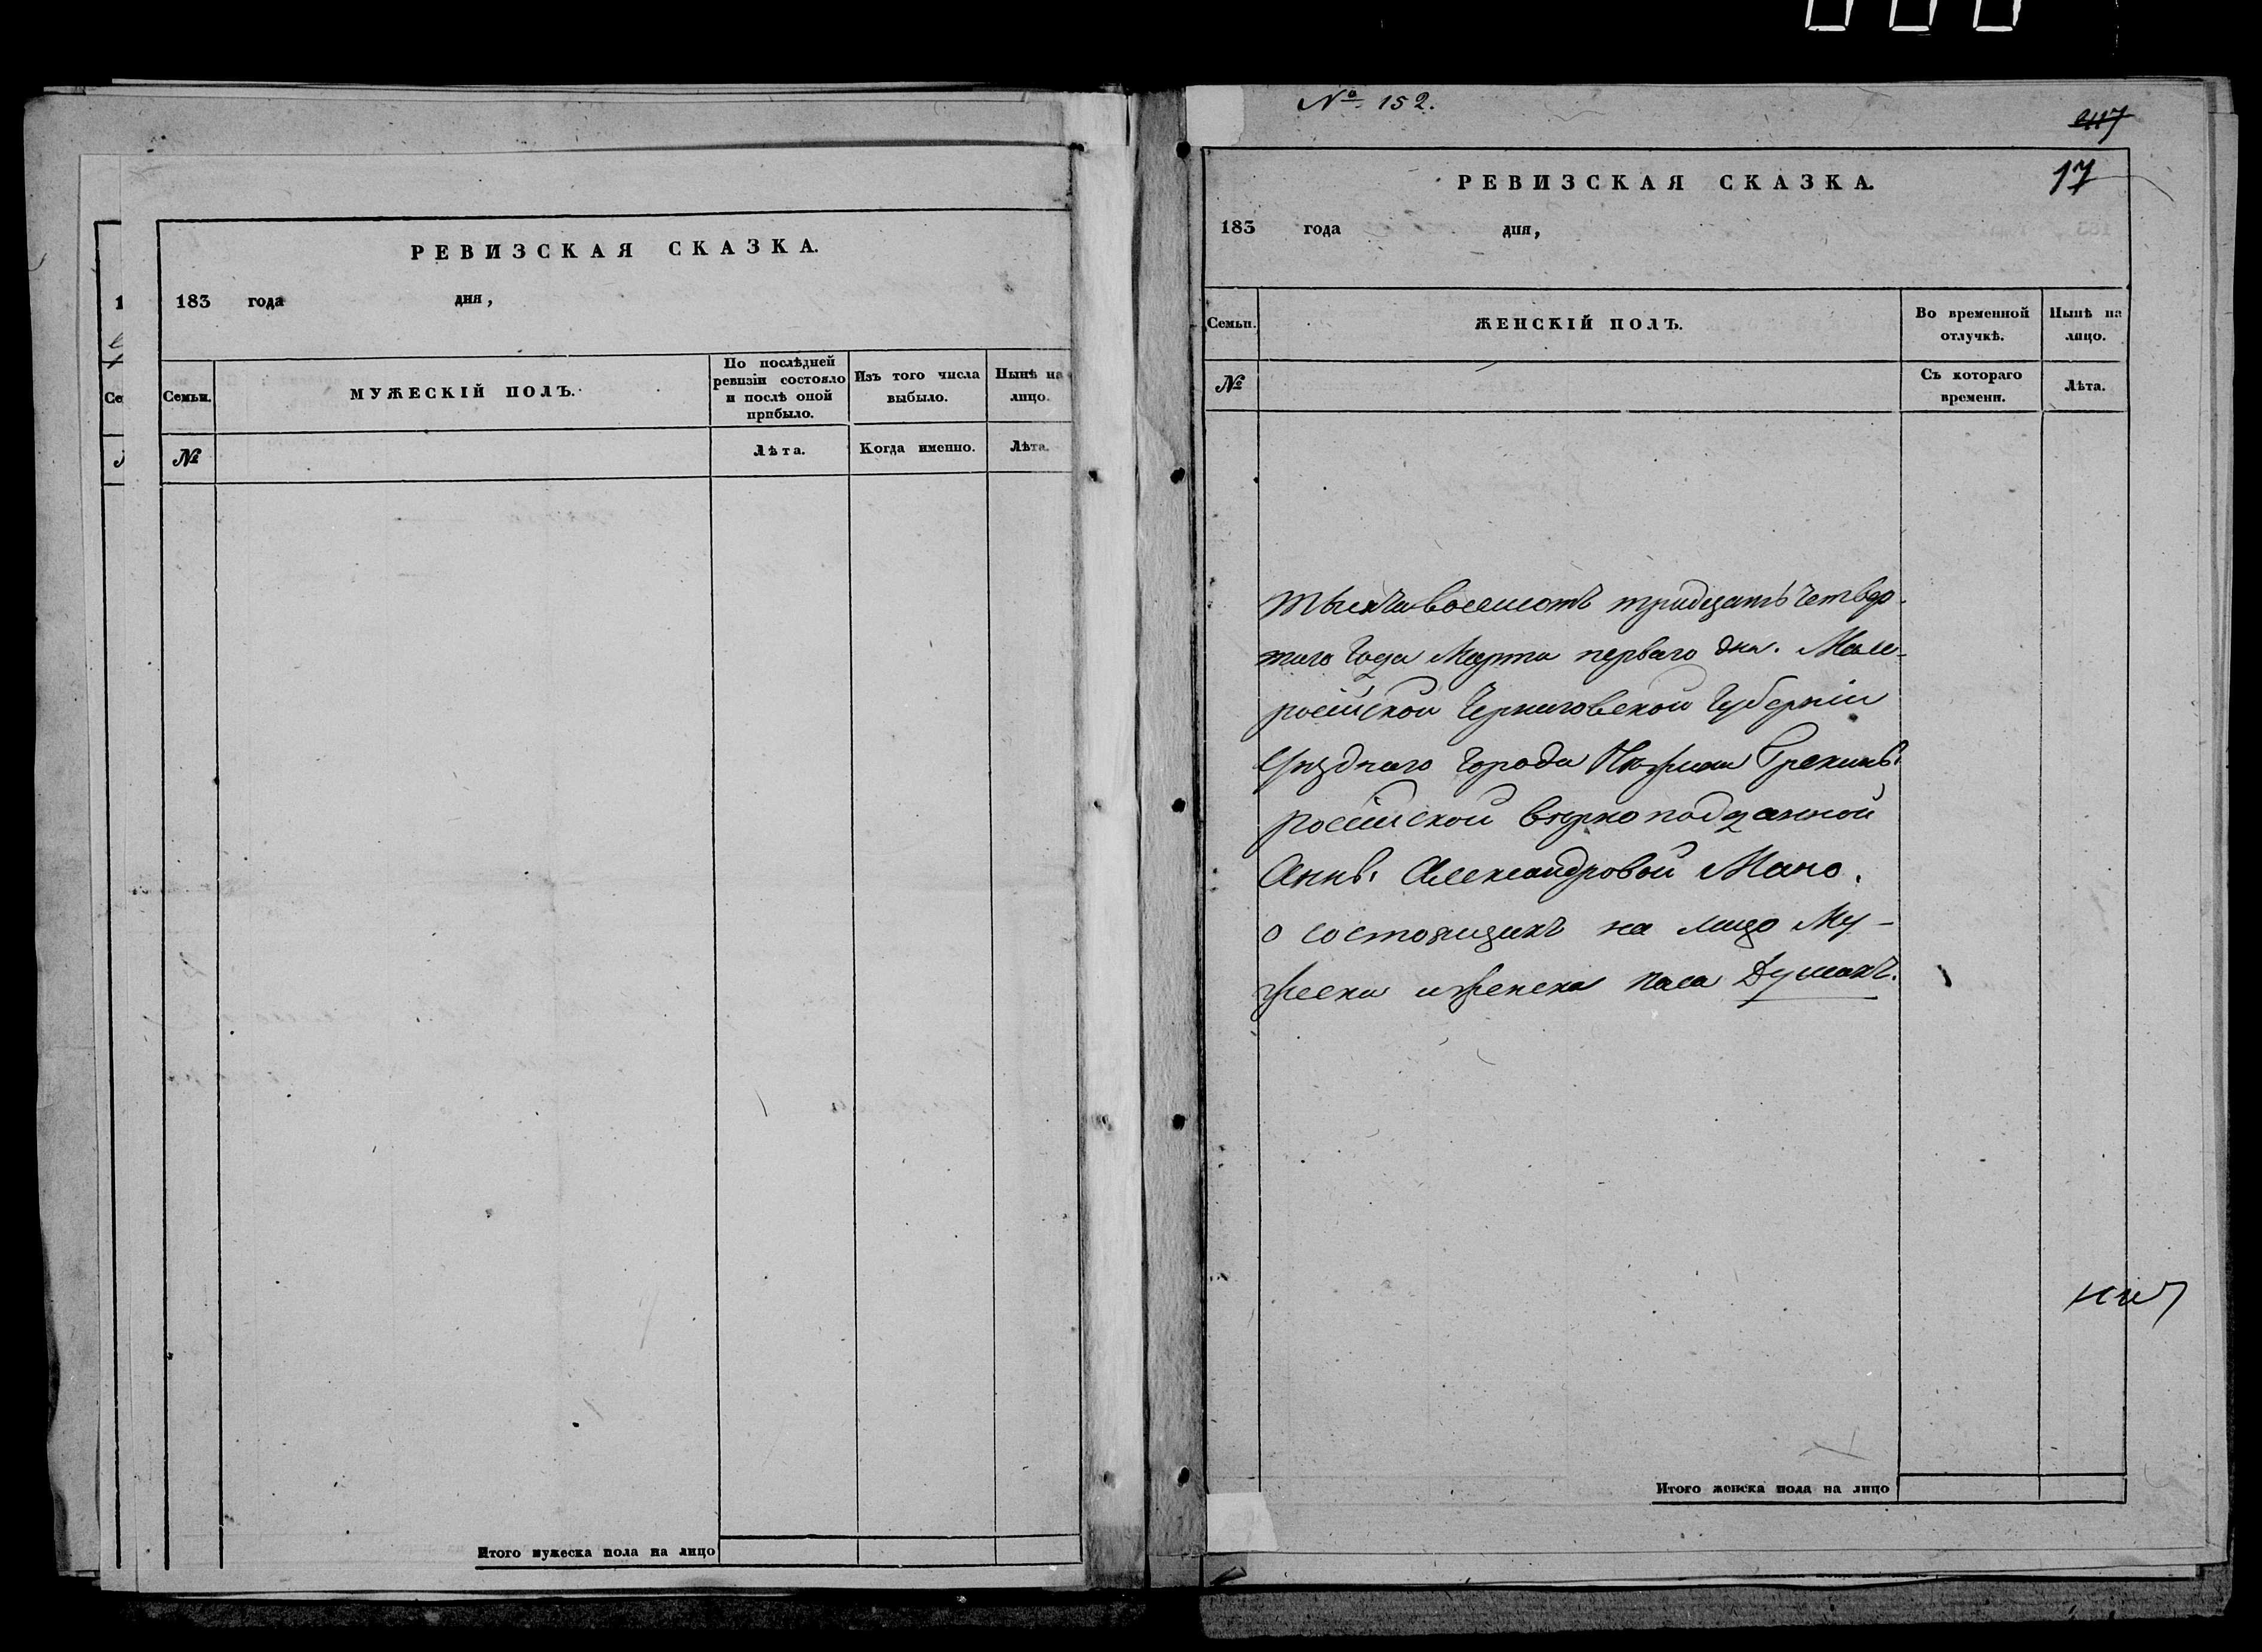 РЕВИЗСКАЯ СКАЗКА.
183 года дня,
Семьи.
МУЖЕСКІЙ ПОЛЪ.
По послѣдней
ревизіи состояло
и послѣ оной
прибыло.
Изъ того числа
выбыло.
Нынѣ на
лицо.
№
Лѣта.
Когда именно.
Лѣта.
Итого мужеска пола на лицо
№ 152.
17
РЕВИЗСКАЯ СКАЗКА.
183 года дня,
Семьи.
ЖЕНСКІЙ ПОЛЪ.
Во временной
отлучкѣ.
Нынѣ на
лицо.
№
Съ котораго
времени.
Лѣта.
тысяча восемсотъ тридцать четвер-
таго года Марта перваго дня. Мало-
россійской Черниговской Губерніи
Уезднаго города Нѣжина Грекинѣ
россійской вѣрноподданной
Аннѣ Александровой Мано.
о состоящихъ на лицо Му-
жеска и женска пола Душахъ.
Итого женска пола на лицо